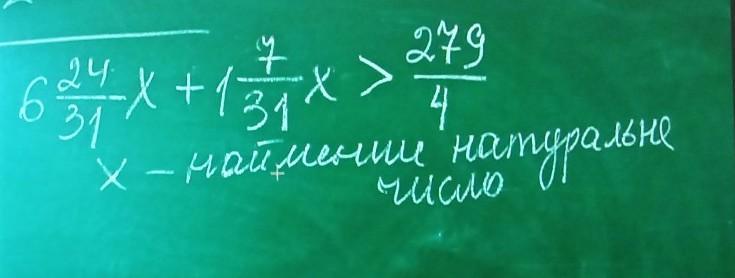 6 24/31 x + 1 7/31 x > 279/4
x – найменше натуральне
число